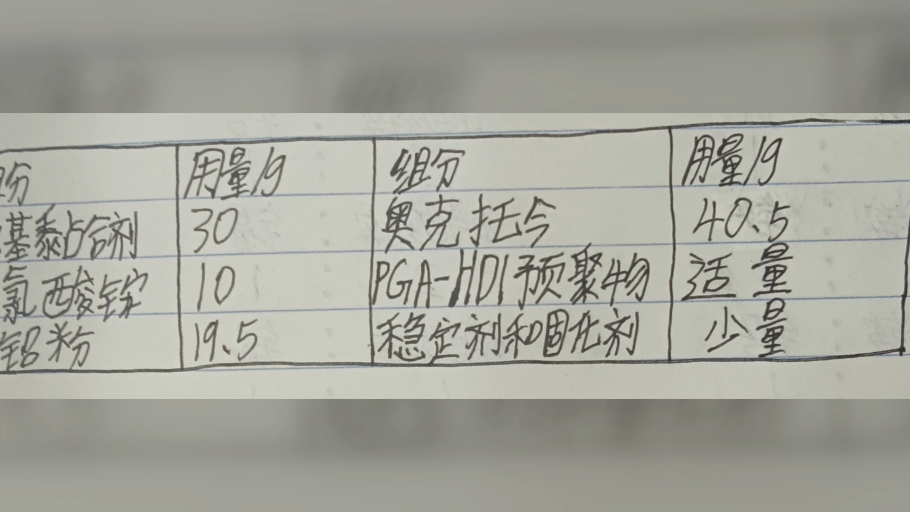 份 用量/g 组分 用量/g
基黏合剂 30 奥克托今 40.5
氯酸铵 10 PGA-HDI预聚物 适量
铝粉 19.5 稳定剂和固化剂 少量